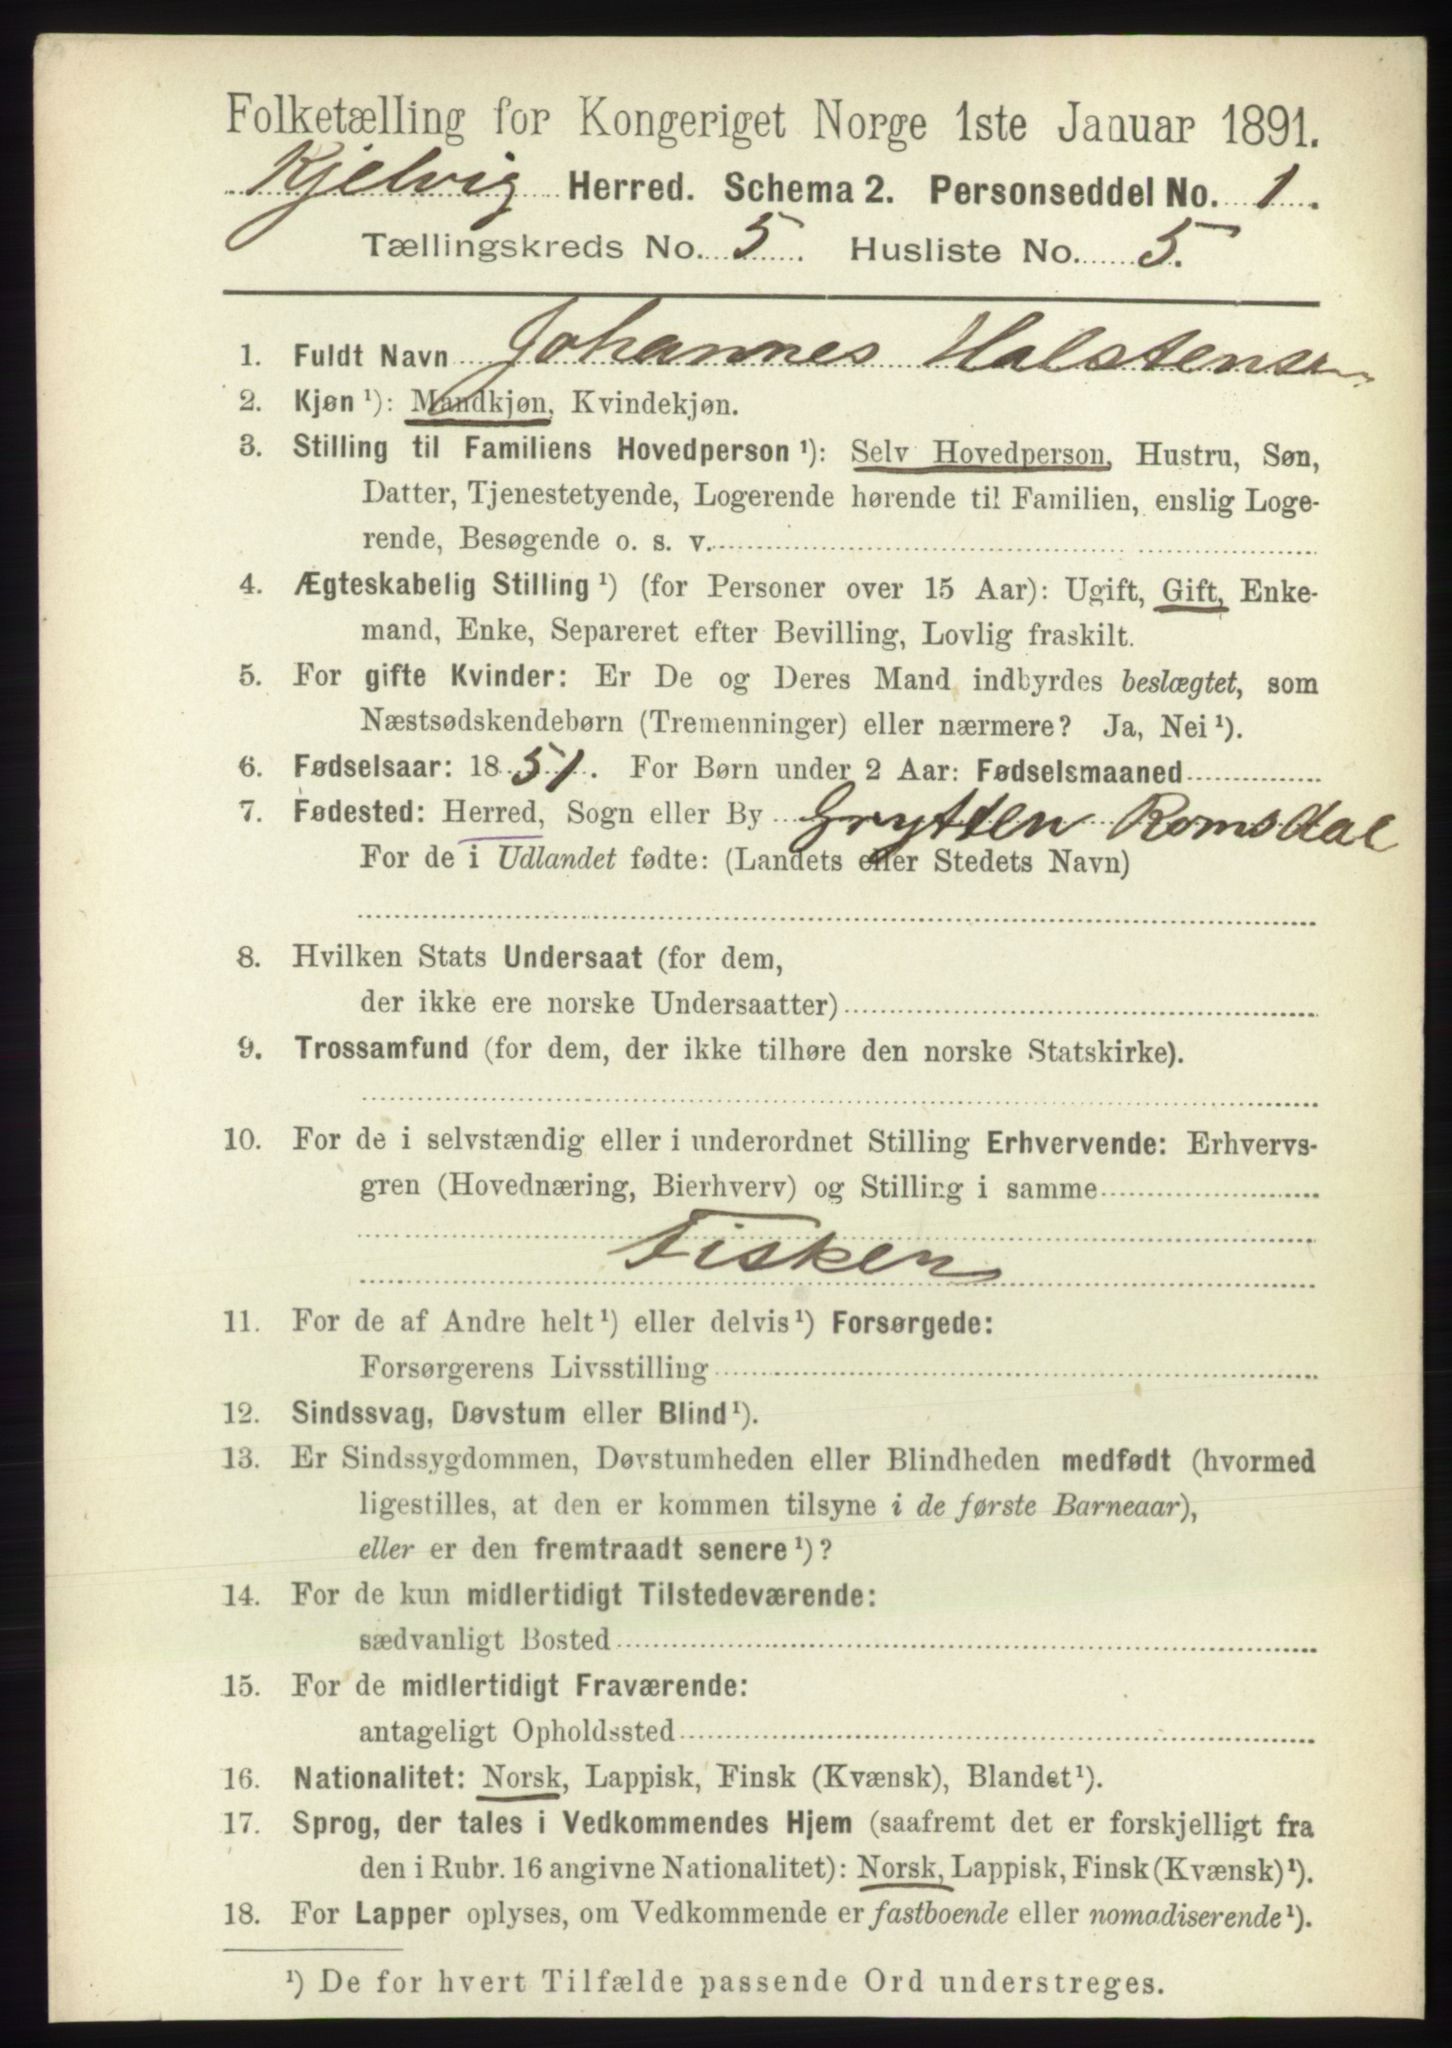 Folketælling for Kongeriget Norge 1ste Januar 1891.
Kjelvig Herred. Schema 2. Personseddel No. 1.
Tællingskreds No. 5. Husliste No. 5.
1. Fuldt Navn Johannes Halstensen
2. Kjøn ¹): Mandkjøn, Kvindekjøn.
3. Stilling til Familiens Hovedperson ¹): Selv Hovedperson, Hustru, Søn,
Datter, Tjenestetyende, Logerende hørende til Familien, enslig Loge-
rende, Besøgende o. s. v.
4. Ægteskabelig Stilling ¹) (for Personer over 15 Aar): Ugift, Gift, Enke-
mand, Enke, Separeret efter Bevilling, Lovlig fraskilt.
5. For gifte Kvinder: Er De og Deres Mand indbyrdes beslægtet, som
Næstsødskendebørn (Tremenninger) eller nærmere? Ja, Nei ¹).
6. Fødselsaar: 1851. For Børn under 2 Aar: Fødselsmaaned
7. Fødested: Herred, Sogn eller By Grytten Romsdal
For de i Udlandet fødte: (Landets eller Stedets Navn)
8. Hvilken Stats Undersaat (for dem,
der ikke ere norske Undersaatter)
9. Trossamfund (for dem, der ikke tilhøre den norske Statskirke).
10. For de i selvstændig eller i underordnet Stilling Erhvervende: Erhvervs-
gren (Hovednæring, Bierhverv) og Stilling i samme
Fisker
11. For de af Andre helt ¹) eller delvis ¹) Forsørgede:
Forsørgerens Livsstilling
12. Sindssvag, Døvstum eller Blind ¹).
13. Er Sindssygdommen, Døvstumheden eller Blindheden medfødt (hvormed
ligestilles, at den er kommen tilsyne i de første Barneaar),
eller er den fremtraadt senere ¹)?
14. For de kun midlertidigt Tilstedeværende:
sædvanligt Bosted
15. For de midlertidigt Fraværende:
antageligt Opholdssted
16. Nationalitet: Norsk, Lappisk, Finsk (Kvænsk), Blandet ¹).
17. Sprog, der tales i Vedkommendes Hjem (saafremt det er forskjelligt fra
den i Rubr. 16 angivne Nationalitet): Norsk, Lappisk, Finsk (Kvænsk) ¹).
18. For Lapper oplyses, om Vedkommende er fastboende eller nomadiserende ¹).
¹) De for hvert Tilfælde passende Ord understreges.